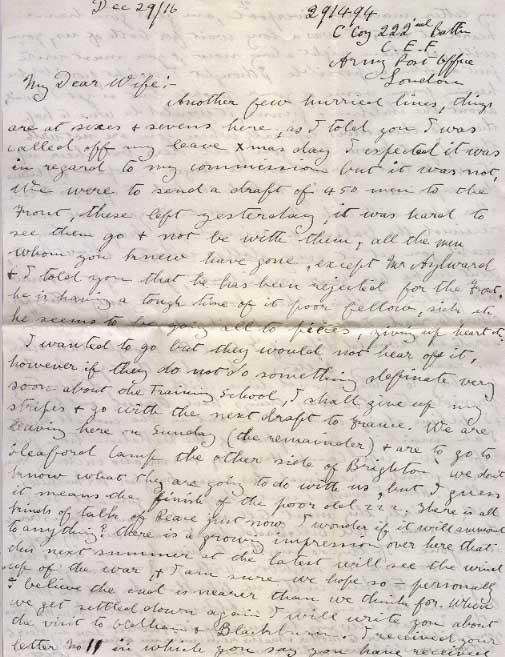 Dec 29/16
291494
C Coy 222nd Battn
C.E.F.
Army Post Office
London
My Dear Wife:-
Another few hurried lines, things
are at sixes & sevens here, as I told you I was
called off my leave Xmas day I expected it was
in regard to my commission but it was not,
We were to send a draft of 450 men to the
Front, these left yesterday, it was hard to
see them go & not be with them, all the men
whom you knew have gone, except Mr Aylward
& I told you that he has been rejected for the Front,
he is having a tough time of it poor fellow, sick etc
he seems to be going all to pieces, giving up heart etc.
I wanted to go but they would not hear of it,
however if they do not do something deffinate very
soon about the Training School, I shall give up my
stripes & go with the next draft to France. We are
leaving here on Sunday (the remainder) & are to go to
Seaford Camp the other side of Brighton, we dont
know what they are going to do with us, but I guess
it means the finish of the poor old 222. There is all
kinds of talk of Peace just now I wonder if it will ammount
to anything? there is a growing impression over here that
this next summer at the latest will see the wind
up of the war, & I am sure we hope so - personally
I believe the end is nearer than we think for. When
we get settled down again I will write you about
the visit to & Blackburn. I received your
letter No 11 in which you say you have received